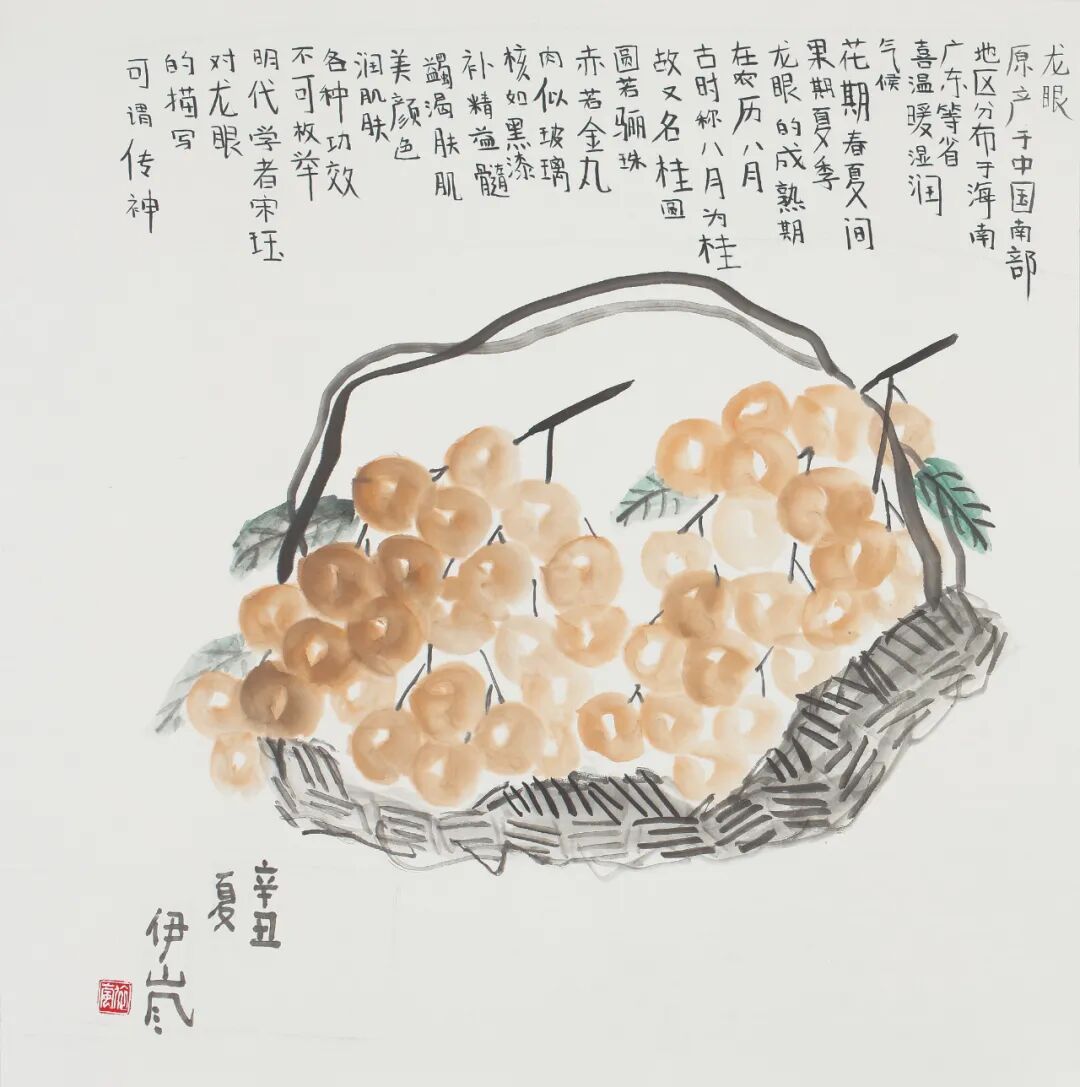 龙眼
原产于中国南部
地区分布于海南
广东等省
喜温暖湿润
气候
花期春夏间
果期夏季
龙眼的成熟期
在农历八月
古时称八月为桂
故又名桂圆
圆若骊珠
赤若金丸
肉似玻璃
核如黑漆
补精益髓
蠲渴肤肌
美颜色
润肌肤
各种功效
不可枚举
明代学者宋珏
对龙眼
的描写
可谓传神
辛丑
夏
伊岚